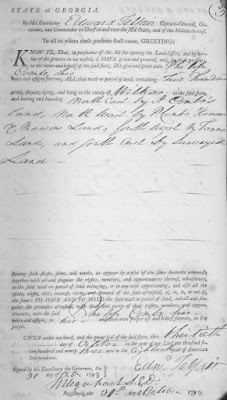 STATE of GEORGIA.
By his Excellency Edward Telfair Captain-General, Gover-
nor, and Commander in Chief in and over the said State, and of the Militia thereof.
To all to whom these presents shall come, GREETING:
KNOW YE, That, in pursuance of the Act for opening the Land-Office, and
of the premises in us vested, I HAVE given and granted, and, by these presents,
in the name and behalf of the said state, DO give and grant unto Philip
Combs, his
heirs and assigns forever, ALL that tract or parcel of land, containing two hundred
acres, situate, lying, and being in the county of Wilkes in the said state,
and butting and bounding North East by J Combs's
land, North West by P Combs
& Mansons Land, South West by
Land, and South East by Surveyed
Land
Having such shape, form, and marks, as appear by a plat of the same hereunto annexed;
together with all and singular the rights, members, and appurtenances thereof, whatsoever,
to the said tract or parcel of land belonging, or in any wise appertaining; and also all the
estate, right, title, interest, of the State aforesaid, of, in, to, or out of,
the same; TO HAVE AND TO HOLD the said tract or parcel of land, and all and singu-
lar the premises aforesaid, with their rights, members, and appurte-
nances, unto the said Philip Combs, his
heirs and assigns, to his own proper use and behoof forever, in fee
simple.
GIVEN under my hand, and the great seal of the said state, this Thirtieth
day of October in the year of our Lord one thousand
seven hundred and ninety three and in the Eighteenth year of American
Independence.
Signed by his Excellency the Governor, the
30 day of Octo. 1793
Edw. Telfair
Registered, the 30th October 1793